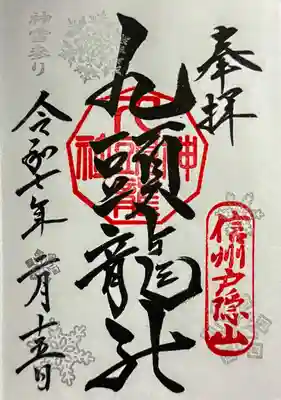 奉拝
信州戸隠山
九頭龍社
令和七年
二月十五日
神雪参り